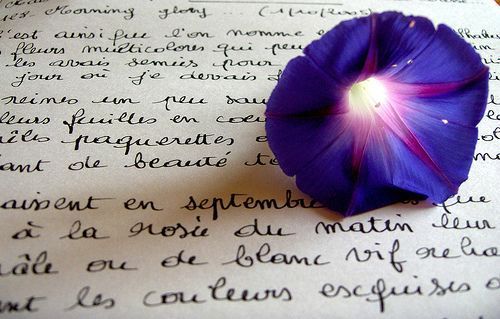 es Morning glory...
'est ainsi que l'on nomme e
fleurs multicolores qui peu
les avais semées pour
jour où je devais
reines un peu sau
leurs feuilles en coeu
êles paquerettes
ant de beauté
aissent en septembre que
à la rosée du matin leur
râle ou de blanc vif reha
ent les couleurs exquises d